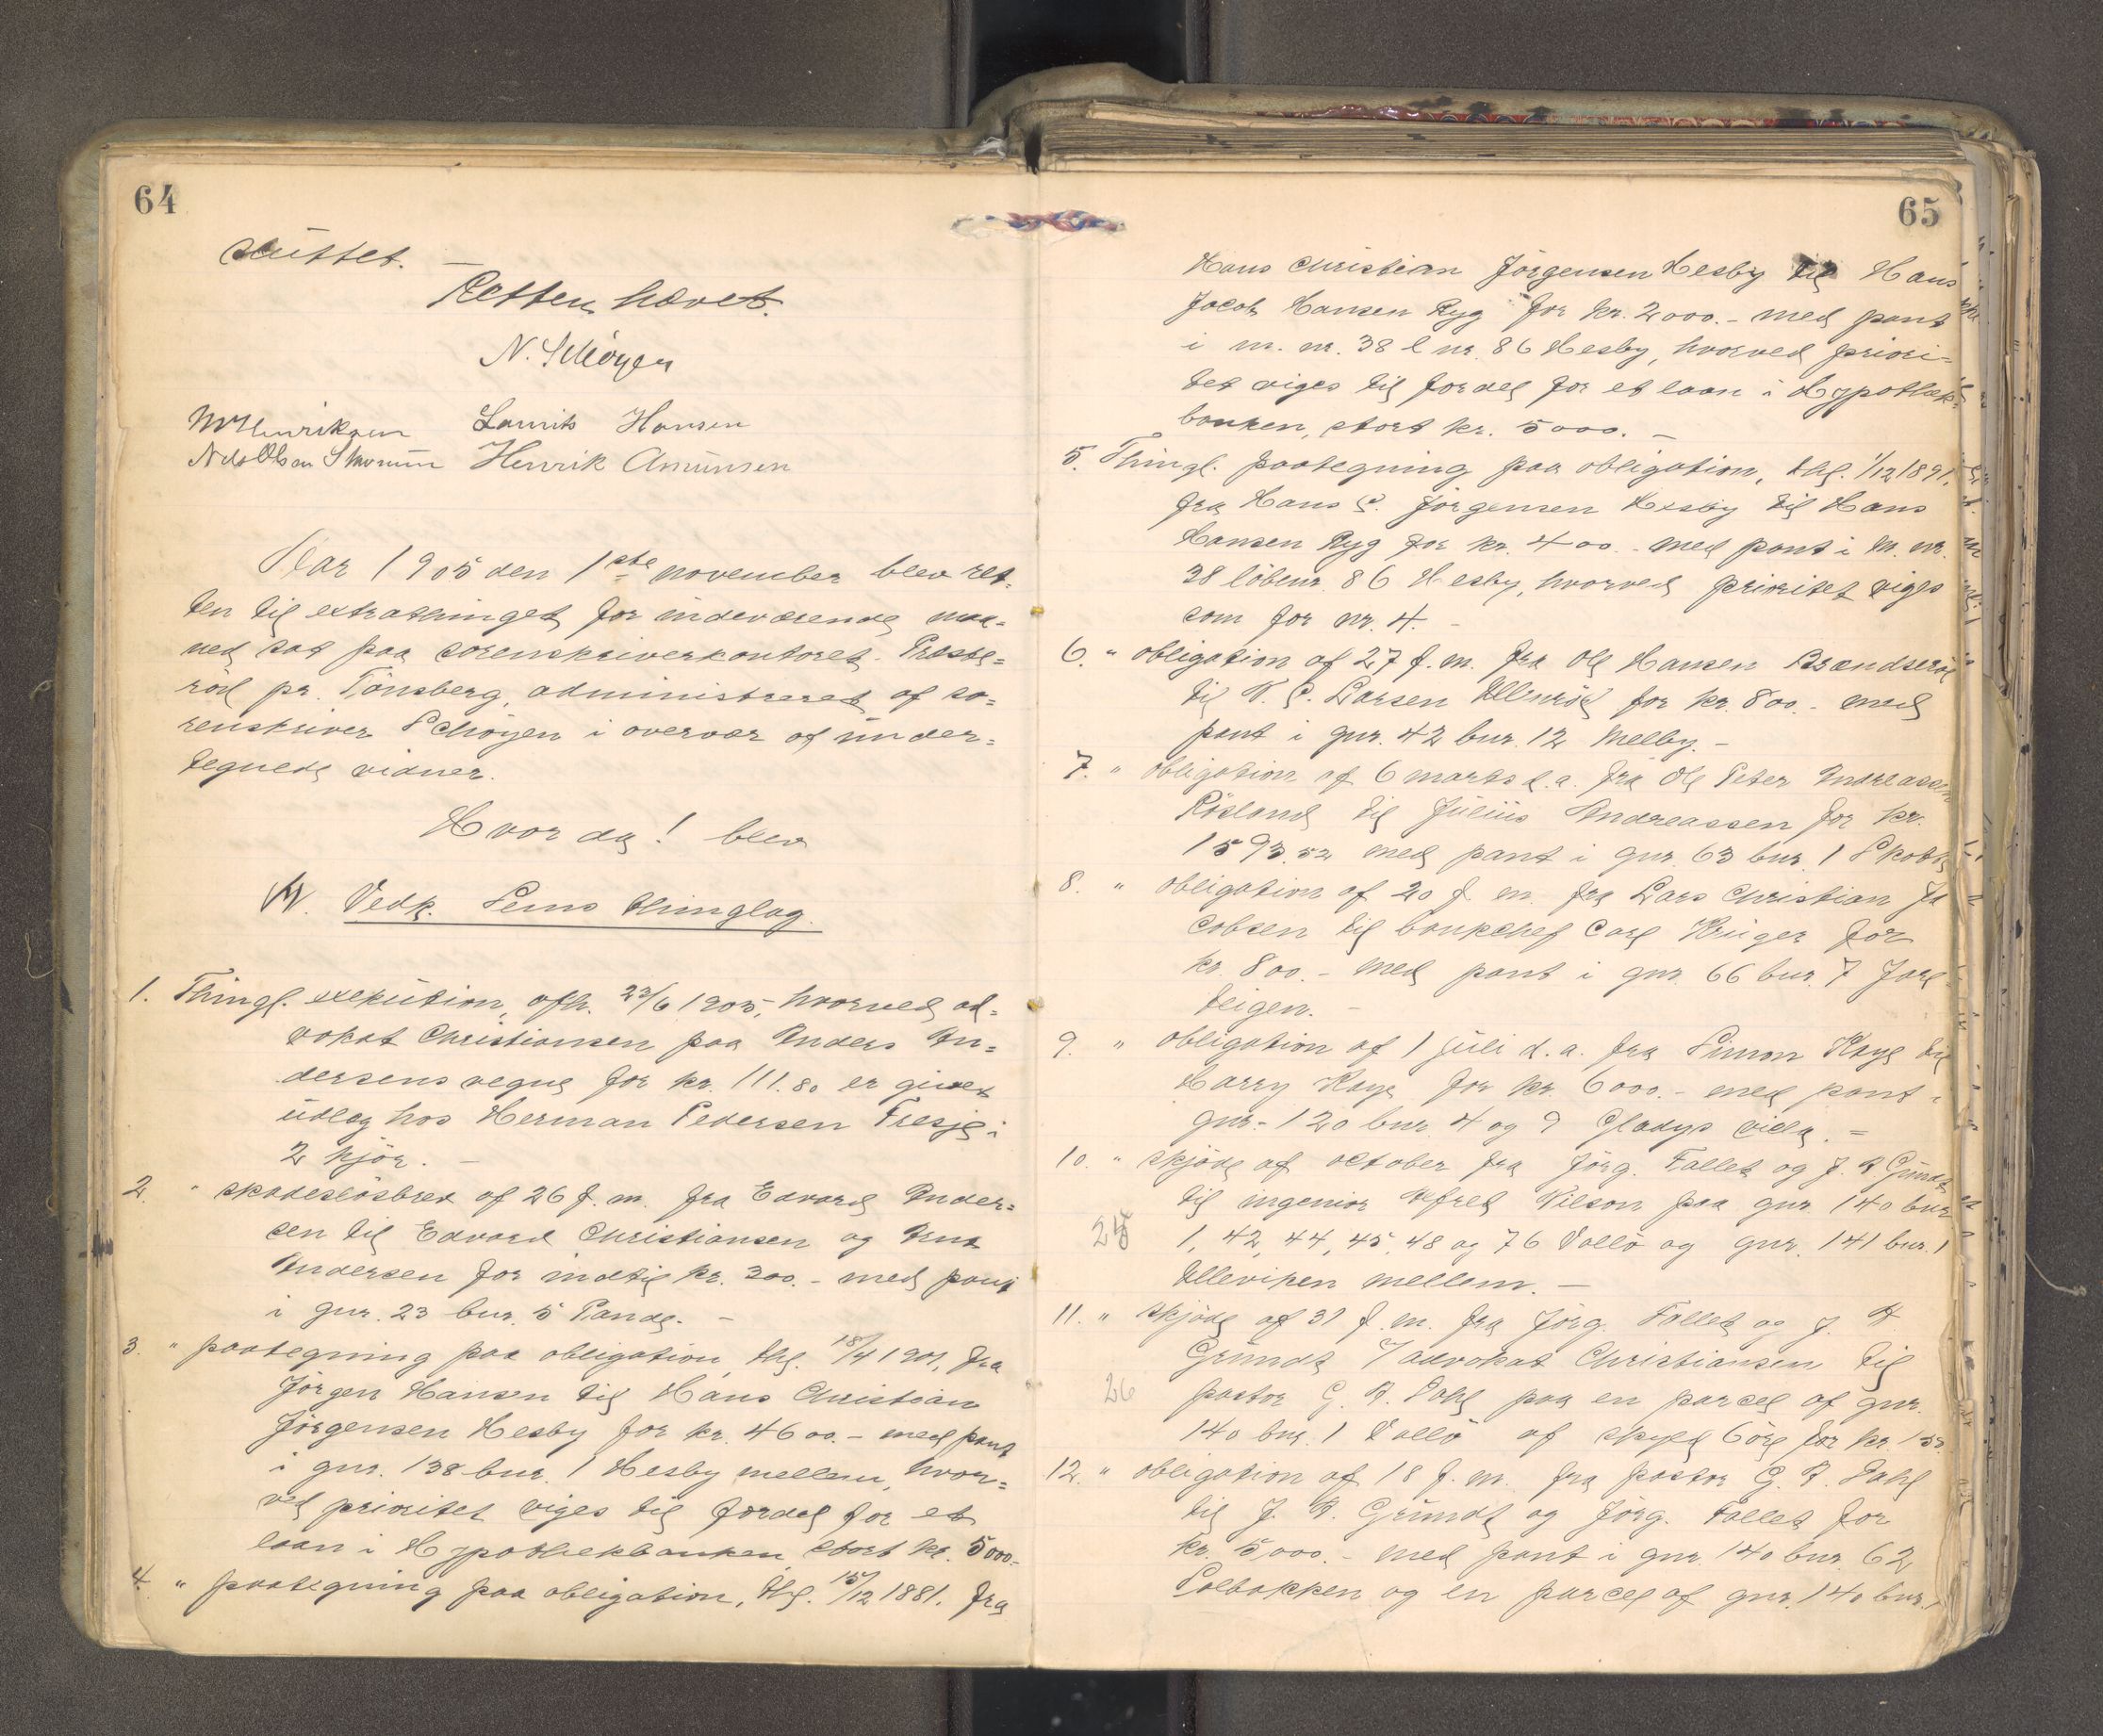 64
sluttet. —
Retten hævet.
N. Schöyen
M Henriksen Laurits Hansen
Nils Olsen Henrik Amunsen
Aar 1905 den 1ste november blev ret-
ten til extrathinget for indeværende maa-
ned sat paa sorenskriverkontoret Præste-
röd pr. Tönsberg, administreret af so-
renskriver Schöyen i overvær af under-
tegnede vidner.
Hvor da! blev
A. Vedk. Sems thinglag.
1. Thingl. exekution, afh. 23/6 1905, hvorved ad-
vokat Christiansen paa Anders An-
dersens vegne for kr. 111.80 er givet
udlæg hos Herman Pedersen Fresje i
2 kjör. —
2. " skadeslösbrev af 26 f. m. fra Edvard Ander-
sen til Edvard Christiansen og Knut
Andersen for indtil kr. 300.- med pant
i gnr. 23 bnr. 5 Rande. —
3. " paategning paa obligation, thl. 18/4 1901, fra
Jörgen Hansen til Hans Christian
Jörgensen Hesby for kr. 4600.- med pant
i gnr. 138 bnr. 1 Hesby mellem, hvor-
ved prioritet viges til fordel for et
laan i Hypothekbanken, stort kr. 5000.-
4. " paategning paa obligation, thl. 15/12 1881. fra
65
Hans Christian Jörgensen Hesby til Hans
Jacob Hansen Ryg for kr. 2000.- med pant
i m. nr. 38 l nr. 86 Hesby, hvorved priori-
tet viges til fordel for et laan i Hypothek-
banken, stort kr. 5000. —
5. Thingl. paategning paa obligation, thl. 1/12 1891.
fra Hans C. Jörgensen Hesby til Hans
Hansen Ryg for kr. 400.- med pant i M. nr.
38 löbenr. 86 Hesby, hvorved prioritet viges
som for nr. 4. —
6. " obligation af 27 f. m. fra Ole Hansen Brændseröd
til C. Larsen for kr. 800.- med
pant i gnr. 42 bnr. 12 Melby. —
7. " obligation af 6 marts d. a. fra Ole Peter Andreassen
Rösland til Julius Andreassen for kr.
1593.52 med pant i gnr. 63 bnr. 1
8. " obligation af 20 f. m. fra Lars Christian Ja
cobsen til bankchef Carl Krüger for
kr. 800.- med pant i gnr. 66 bnr. 7 Jare-
teigen. —
9. " obligation af 1 juli d. a. fra Simon Kaye til
Harry Kaye for kr. 6000.- med pant i
gnr. 120 bnr. 4 og 9 Gladys villa. —
10. " skjöde af october fra Jörg. Follet og J. A Grundt
til ingeniör Alfred Wilson paa gnr. 140 bnr
25
1, 42, 44, 45, 48 og 76 Vallö og gnr. 141 bnr. 1
Illeviken mellem. —
11. " skjöde af 31 f. m. fra Jörg. Follet og J. A
Grundt / advokat Christiansen til
26
pastor G. A. Dahl paa en parcel af gnr.
140 bnr. 1 Vallö af skyld 6 öre for kr. 150
12. " obligation af 18 f. m. fra pastor G. A. Dahl
til J. A. Grundt og Jörg. Follet for
kr. 5,000.- med pant i gnr. 140 bnr. 62
Solbakken og en parcel af gnr. 140 bnr. 1